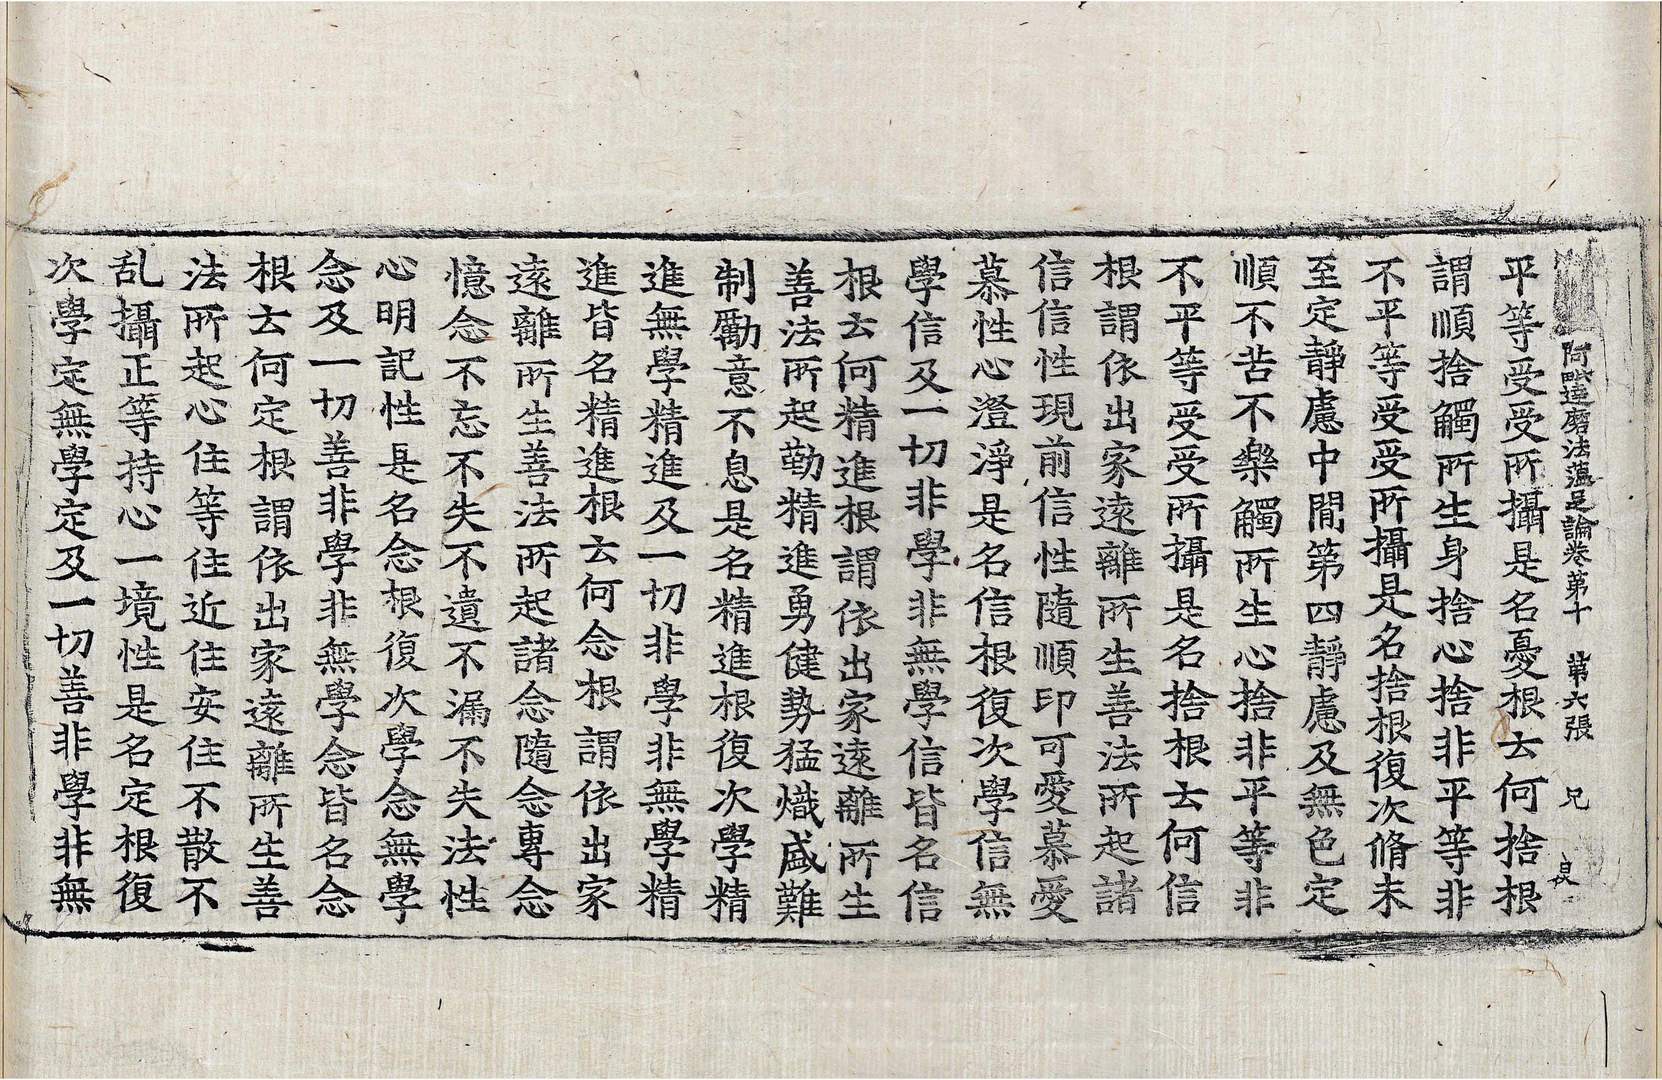 阿毗達磨法蘊足論卷第十 第六張 兄
平等受受所攝是名憂根云何捨根
謂順捨觸所生身捨心捨非平等非
不平等受受所攝是名捨根復次脩未
至定靜慮中間第四靜慮及無色定
順不苦不樂觸所生心捨非平等非
不平等受受所攝是名捨根云何信
根謂依出家遠離所生善法所起諸
信信性現前信性隨順印可愛慕愛
慕性心澄淨是名信根復次學信無
學信及一切非學非無學信皆名信
根云何精進根謂依出家遠離所生
善法所起勤精進勇健勢猛熾盛難
制勵意不息是名精進根復次學精
進無學精進及一切非學非無學精
進皆名精進根云何念根謂依出家
遠離所生善法所起諸念隨念專念
憶念不忘不失不遺不漏不失法性
心明記性是名念根復次學念無學
念及一切善非學非無學念皆名念
根云何定根謂依出家遠離所生善
法所起心住等住近住安住不散不
乱攝正等持心一境性是名定根復
次學定無學定及一切善非學非無